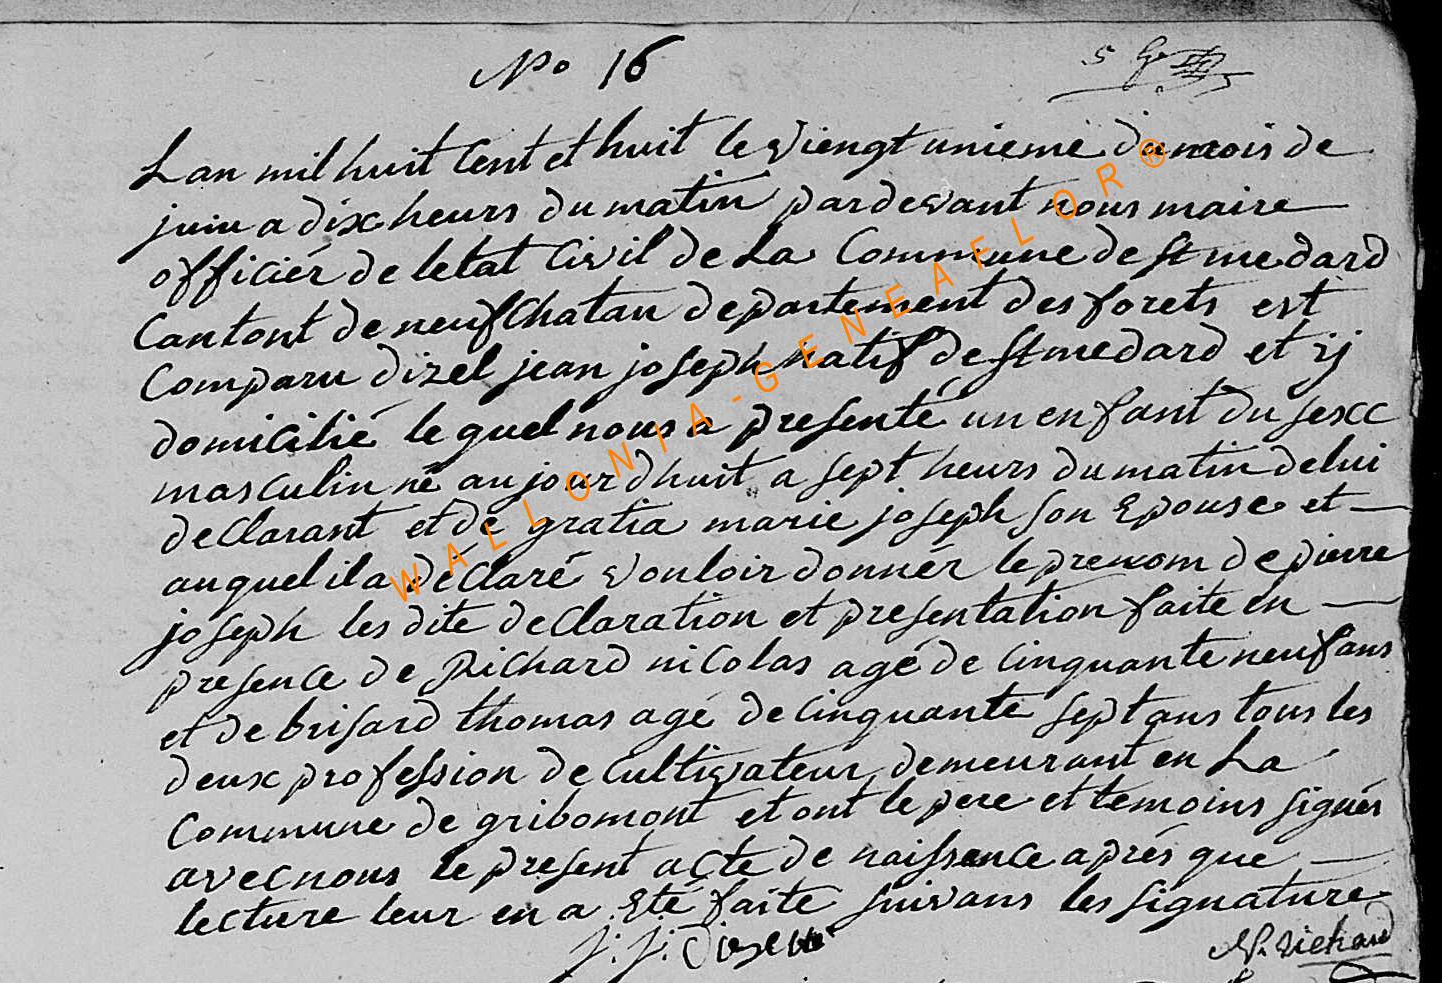 No 16
Lan mil huit Cent et huit le viengt unieme du mois de
juin a dix heurs du matin pardevant nous maire
officiér de letat Civil de La Commune de st medard
Cantont de neufChatau departement des forets est
Comparu dizel jean joseph natif de st medard et ij
domicilié le quel nous a presenté un enfant du sexc
masculin né aujourdhuit a sept heurs du matin delui
deClarant et de gratia marie joseph son Epouse et
auquel il a déClaré vouloir donnér le prenom de pierre
joseph les dite deClaration et presentation faite en
presence de Richard nicolas agé de Cinquante neuf ans
et de brisard thomas agé de Cinquante sept ans tous les
deux profession de Cultivateur demeurant en La
Commune de gribomont et ont le pere et temoins signés
avec nous le present acte de naissance aprés que
lecture leur en a Eté faite suivans les signature
j. j. N. richard
WALLONIA-GENEAFLOR®